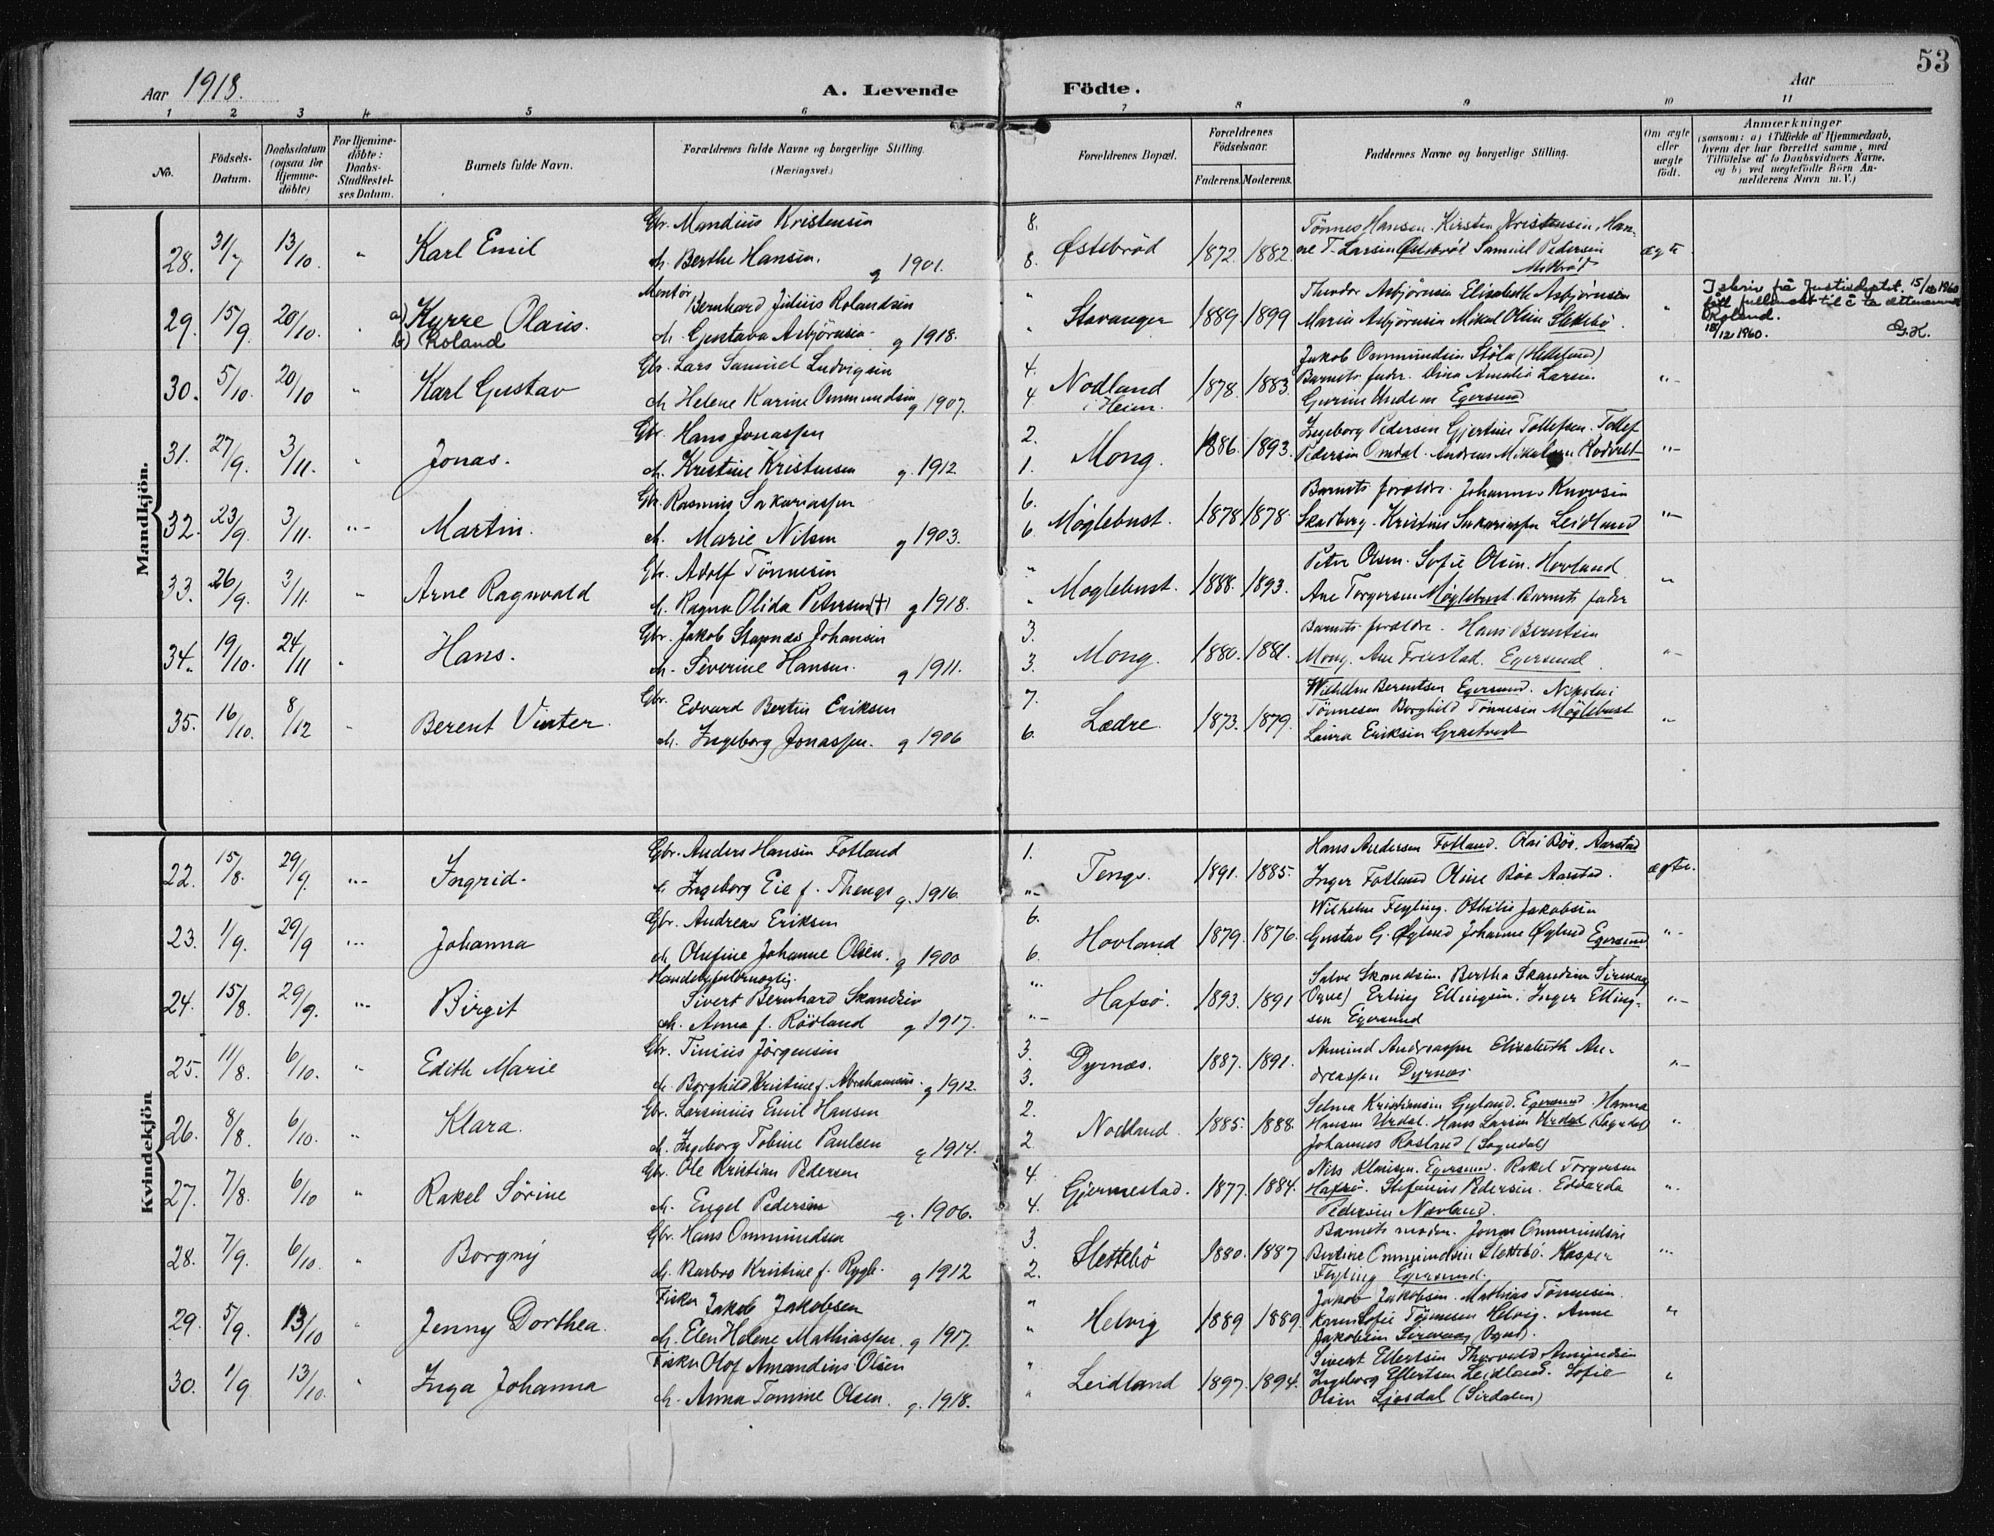 53
Aar 1918.
A. Levende Födte.
Aar
1 2 3 4 5 6 7 8 9 10 11
No.
Födsels-Datum.
Daabsdatum (ogsaa for Hjemme-döbte)
For Hjemme-döbte: Daabs-Stadfæstel-ses Datum.
Barnets fulde Navn.
Forældrenes fulde Navne og borgerlige Stilling. (Næringsvei.)
Forældrenes Bopæl.
Forældrenes Födselsaar.
Faderens. Moderens.
Faddernes Navne og borgerlige Stilling.
Om ægte eller uægte födt.
Anmærkninger
(saasom: a) i Tilfælde af Hjemmedaab, hvem der har forrettet samme, med Tilföielse af to Daabsvidners Navne, og b) ved uægtefödte Börn An-melderens Navn m. V.)
Mandkjön.
28. 31/7 13/10. " Karl Emil Gbr. Mandius Kristensen 8. Østebrød 1872. 1882. Tönnes Hansen. Kirsten Kristensen, Han-
h. Berthe Hansen. g 1901. 8. T. Larsen Østebrød Samuel Pedersen
29. 15/9. 20/10. " a) Kyrre Olaus. Montör Bernhard Julius Rolandsen " Stavanger 1889. 1899 Theodor Asbjörnsen Elisabeth Asbjörnsen "
b) (Roland h. Gustava Asbjörnsen. g 1918. Maria Asbjörnsen Mikal Olsen Slettebö.
I skriv fra Justisdeptet. 15/10 1960
Roland.
12 1960. G.K.
30. 5/10. 20/10 " Karl Gustav Gbr. Lars Samuel Ludvigsen 4. Nodland i Heim. 1878. 1883 Jakob Ommundsen Stöla (Hetland)
h. Helene Karine Ommundsen g 1907. 4 Barnets fader. Dina Amalia Larsen
Egersund "-
31. 27/9. 3/11. " Jonas. Gbr. Hans Jonassen 2. Mong. 1886. 1893. Ingeborg Pedersen Gjertine Tollefsen. Tollef
h. Kristine Kristensen g 1912 1. Pedersen Omdal. Andreas Mikalsen "-
32. 23/9 3/11. "- Martin. Gbr. Rasmus Sakariassen 6. Møglebust. 1878 1878. Barnets forældre. Johannes Knovsen
h. Marie Nilsen g 1903. 6 Skadberg. Kristine Sakariassen Leidland "-
33. 26/9. 3/11. " Arne Ragnvald Gbr. Adolf Tönnesen " Moglebust. 1888. 1893. Peter Olsen. Sofie Olsen. Hovland "
h. Ragna Olida Petersen (†) g 1918. " Ane Torgersen Møglebust. Barnets fader
34. 19/10. 24/11 " Hans. Gbr. Jakob Stapnes Johansen 3. Mong. 1880. 1881. Barnets forældre. Hans Berntsen
h. Severine Hansen. g 1911. 3. Mong. Ane Friestad. Egersund. "-
35. 16/10. 8/12 " Berent Vinter. Gbr. Edvard Bertin Eriksen 7. Lædre. 1873. 1879. Wilhelm Berentsen Egersund. Nikolai
h. Ingeborg Jonassen. g 1906 6. Tönnesen Borghild Tönnesen Møglebust "
Laura Eriksen
Kvindekjön
22. 15/8. 29/9. "- Ingrid. Gbr. Anders Hansen Fotland 1. Tengs. 1891. 1885. Hans Andersen Fotland. Olai Böe. Aarstad ægte.
h. Ingeborg Eie f. Thengs g. 1916. "- Inger Fotland Oline Böe Aarstad.
23. 1/9. 29/9 "- Johanna Gbr. Andreas Eriksen 6. Hovland 1879. 1876. Wilhelm Feyling. Othilie Jakobsen
h. Olufine Johanne Olsen. g 1900 6. Gustav G. Øglend Johanne Øglend Egersund "-
24. 15/8. 29/9. "- Birgit Handelsfuldmægtig. Sivert Bernhard Skandsen "- Hafsö. 1893. 1891 Salve Skandsen. Bertha Skandsen Sirevaag
h. Anna f. Rödland g 1917. "- (Ogne) Erling Ellingsen. Inger Elling-
sen Egersund "-
25. 11/8. 6/10. " Edith Marie Gbr. Tinius Jörgensen 3. Dyrnæs. 1887. 1891. Amund Andreassen Elisabeth An-
h. Borghild Kristine f. Abrahamsen g 1912. 3. dreassen Dyrnæs "-
26. 8/8. 6/10. " Klara. Gbr. Larsinius Emil Hansen 2. Nodland. 1885. 1888 Selma Kristiansen Gyland. Egersund. Hanna
h. Ingeborg Tobine Paulsen g 1914. 2 Hansen Urdal. Hans Larsen Urdal (Sogndal)
Johannes Rosland (Sogndal) "
27. 7/8. 6/10 " Rakel Sörine Gbr. Ole Kristian Pedersen 4. Gjermestad. 1877. 1884. Nils Klausen. Egersund. Rakel Torgersen
h. Engel Pedersen g. 1906. 4. Hafsö. Stefanus Pedersen. Edvarda
Pedersen Nævland. "-
28. 7/9. 6/10. " Borgny Gbr. Hans Ommundsen 3. Slettebö 1880. 1887 Barnets moder. Jonas Ommundsen
h. Barbro Kristine f. Rygh. g 1912 2. Bertine Ommundsen Slettebö. Kasper
Feyling Egersund. "-
29. 5/9. 13/10 " Jenny Dorthea. Fisker Jakob Jakobsen " Helvig 1889 1889. Jakob Jakobsen. Mathias Tönnesen.
h. Elen Helene Mathiassen. g 1917. " Karen Sofie Tönnesen Helvig. Anne
Jakobsen Sirevaag (Ogne). "
30. 1/9 13/10. " Inga Johanna Fisker Olof Amandius Olsen " Leidland 1897. 1894. Sivert Ellertsen Thorvald Amundsen
h. Anna Tomine Olsen. g. 1918. " Ingeborg Ellertsen Leidland E. Sofie
Olsen Ljosdal (Sirdalen) "